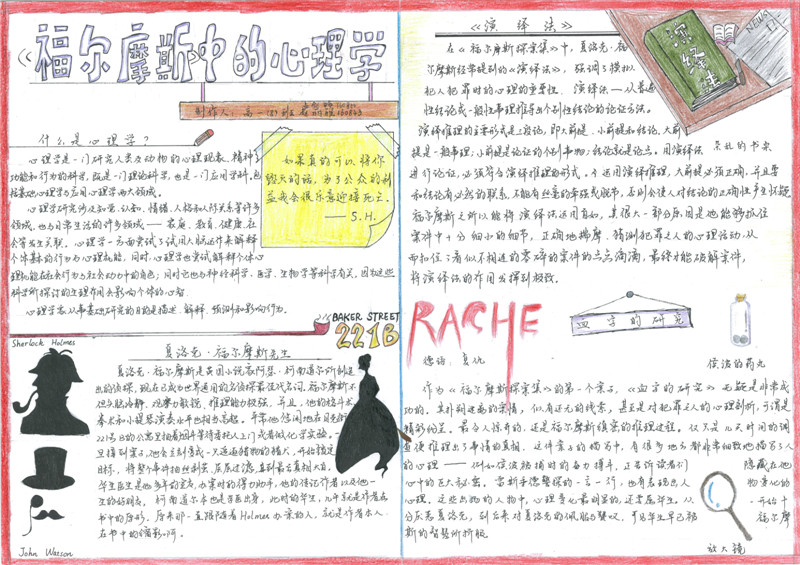 《福尔摩斯》中的心理学
制作人：高一(8)班
什么是心理学？
心理学是一门研究人类及动物的心理现象、精神
功能和行为的科学，既是一门理论科学，也是一门应用学科。包
括基础心理学与应用心理学两大领域。
心理学研究涉及知觉、认知、情绪、人格和人际关系等许多
领域，也与日常生活的许多领域——家庭、教育、健康、社
会等发生关联。心理学一方面尝试了试用人脑运作来解释
个体基本的行为与心理机能，同时，心理学也尝试解释个体心
理机能在社会行为与社会动力中的角色；同时它也与神经科学、医学、生物学等科学有关，因为这些
科学所探讨的生理作用会影响个体的心智。
心理学家从事基础研究的目的是描述、解释、预测和影响行为。
如果真的可以将你
毁灭的话，为了公众的利
益我会很乐意迎接死亡。
—— S.H.
BAKER STREET
221B
Sherlock Holmes
夏洛克·福尔摩斯先生
夏洛克·福尔摩斯是英国小说家阿瑟·柯南道尔所创造
出的侦探，现在已成为世界通用的名侦探最佳代名词。福尔摩斯不
但头脑冷静、观察力敏锐、推理能力极强，并且，他的格斗术、
拳术和小提琴演奏水平也相当高超。平常他悠闲地在贝克街
221号B的公寓里抽着烟斗等待委托人上门或者做化学实验。一
旦接到案子，他会立刻变成一只追逐猎物的猎犬，开始锁定
目标，将整个事件抽丝剥茧、层层过滤，直到最后真相大白。
华生医生是他多年的室友、办案时的得力助手，他的传记作者以及他一
生的好朋友。柯南道尔本也是军医出身，此时的华生，几乎就是作者在
书中的原形。原来那一直跟随着Holmes办案的人，就是作者本人
在书中的缩影啊。
John Watson
《演绎法》
在《福尔摩斯探案集》中，夏洛克·福
尔摩斯经常提到的《演绎法》，强调了模拟
犯人犯罪时的心理的重要性。演绎法——从普遍
性结论或一般性事理推导出个别性结论的论证方法。
演绎推理的主要形式是三段论，即大前提、小前提和结论。大前
提是一般事理；小前提是论证的个别事物；结论就是论点。用演绎法
进行论证，必须符合演绎推理的形式。运用演绎推理，大前提必须正确，并且要
和结论有必然的联系，不能有丝毫的牵强或脱节，否则会使人对结论的正确性产生怀疑。
福尔摩斯之所以能将演绎法运用自如，其很大一部分原因是他能够抓住
案件中十分细小的细节，正确地揣摩、猜测犯罪之人的心理活动，从
而扣住了看似不相连的零碎的案件的点点滴滴，最终才能破解案件，
将演绎法的作用发挥到极致。
演绎法
NEWS
杂乱的书桌
RACHE
德语：复仇
血字的研究
侦法的药丸
作为《福尔摩斯探案集》的第一个案子，《血字的研究》无疑是非常成
功的。其扑朔迷离的案情，似有还无的线索，甚至是对犯罪之人的心理剖析，可谓是
精彩绝伦。最令人惊奇的，还是福尔摩斯缜密的推理过程。仅只是几天时间的调
查便推理出了事情的真相。这件案子的描写中，有很多地方都非常细致地描写了人
的心理——例如侯波被捕时的奋力挣扎，正告诉读者们隐藏在他
心中的巨大秘密。雷斯垂德警探的一言一行，也有表现出人物变化的
心理。这些出场的人物中，心理变化最明显的，还当属华生。从一开始十
分反感夏洛克，到后来对夏洛克的佩服与赞叹，可见华生早已被福尔摩
斯的智慧所折服。
放大镜